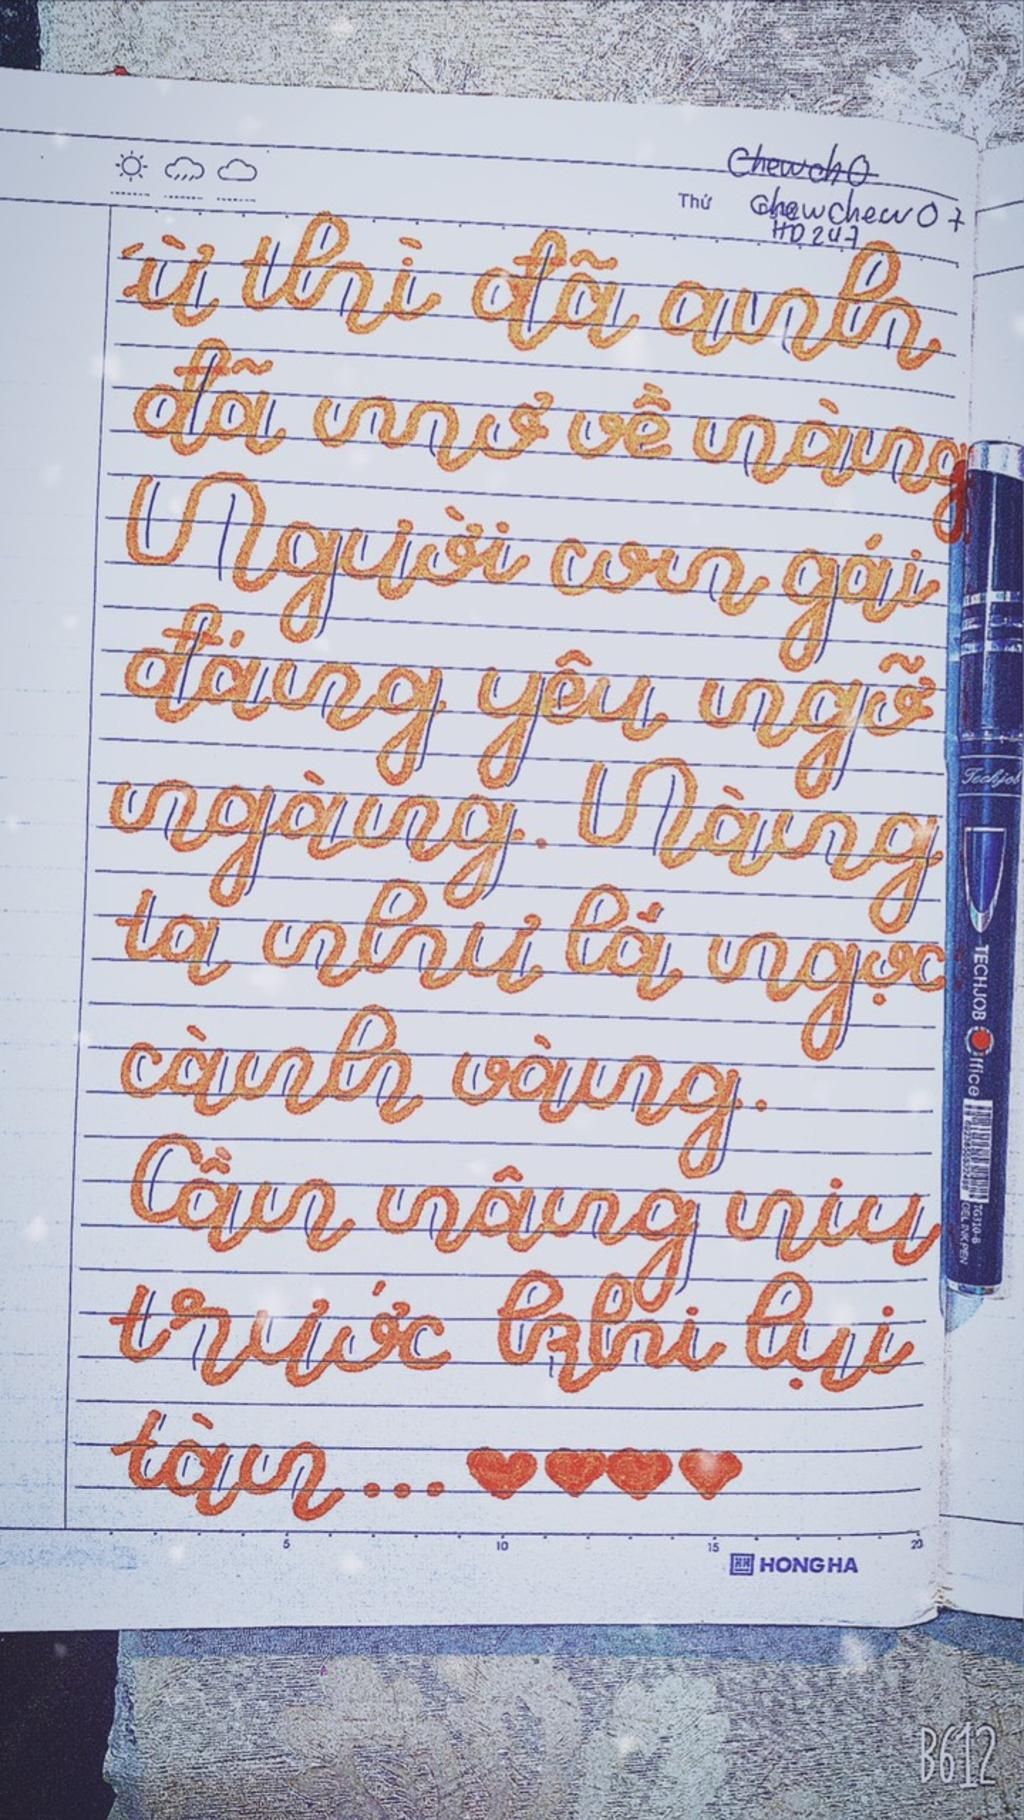 Chewch0
Thứ
Chewchew07
HD247
ừ thì đã anh
đã mơ về nàng
Người con gái
đáng yêu ngỡ
ngàng. Nàng
ta như lá ngọc
cành vàng.
Cần nâng niu
trước khi lụi
tàn...
5 10 15 20
HONG HA
Techjob
TECHJOB Office
TG310-B
GEL INK PEN
B612